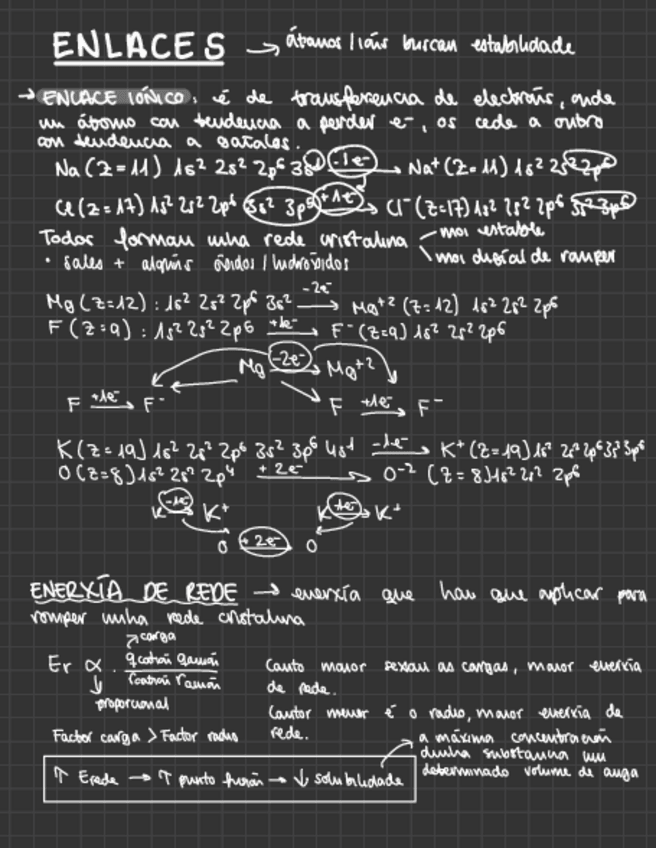 ENLACES → átomos / ións buscan estabilidade
→ ENLACE IÓNICO: é de transferencia de electróns, onde
un átomo con tendencia a perder e-, os cede a outro
con tendencia a gañalos.
Na (Z=11) 1s² 2s² 2p⁶ 3s¹ -1e⁻ → Na⁺ (Z=11) 1s² 2s² 2p⁶
Cl (Z=17) 1s² 2s² 2p⁶ 3s² 3p⁵ +1e⁻ → Cl⁻ (Z=17) 1s² 2s² 2p⁶ 3s² 3p⁶
Todos forman unha rede cristalina - moi estable
\ moi difícil de romper
• sales + algúns óxidos / hidróxidos
Mg (Z=12) : 1s² 2s² 2p⁶ 3s² -2e⁻ → Mg⁺² (Z=12) 1s² 2s² 2p⁶
F (Z=9) : 1s² 2s² 2p⁵ +1e⁻ → F⁻ (Z=9) 1s² 2s² 2p⁶
Mg -2e⁻ → Mg⁺²
F +1e⁻ → F⁻ F +1e⁻ → F⁻
K (Z=19) 1s² 2s² 2p⁶ 3s² 3p⁶ 4s¹ -1e⁻ → K⁺ (Z=19) 1s² 2s² 2p⁶ 3s² 3p⁶
O (Z=8) 1s² 2s² 2p⁴ +2e⁻ → O⁻² (Z=8) 1s² 2s² 2p⁶
K -1e⁻ → K⁺ K +1e⁻ → K⁺
O +2e⁻ → O
ENERXÍA DE REDE → enerxía que hai que aplicar para
romper unha rede cristalina
carga
Er ∝ . qcatión qanión / rcatión ranión
proporcional
Canto maior sexan as cargas, maior enerxía
de rede.
Cantor menor é o radio, maior enerxía de
rede.
Factor carga > Factor radio
↑ Erede → ↑ punto fusión → ↓ solubilidade
a máxima concentración
dunha substancia nun
determinado volume de auga